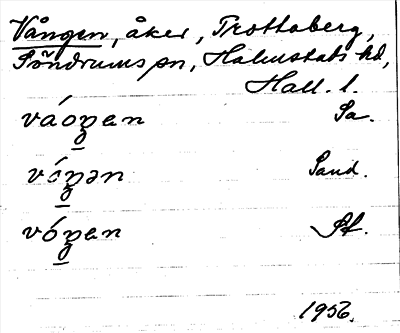 Vången, åker, Trottaberg,
Söndrums sn, Halmstads hd,
Hall. l.
váoŋen Sa.
vóŋən Sand.
vóŋen Af.
1956.